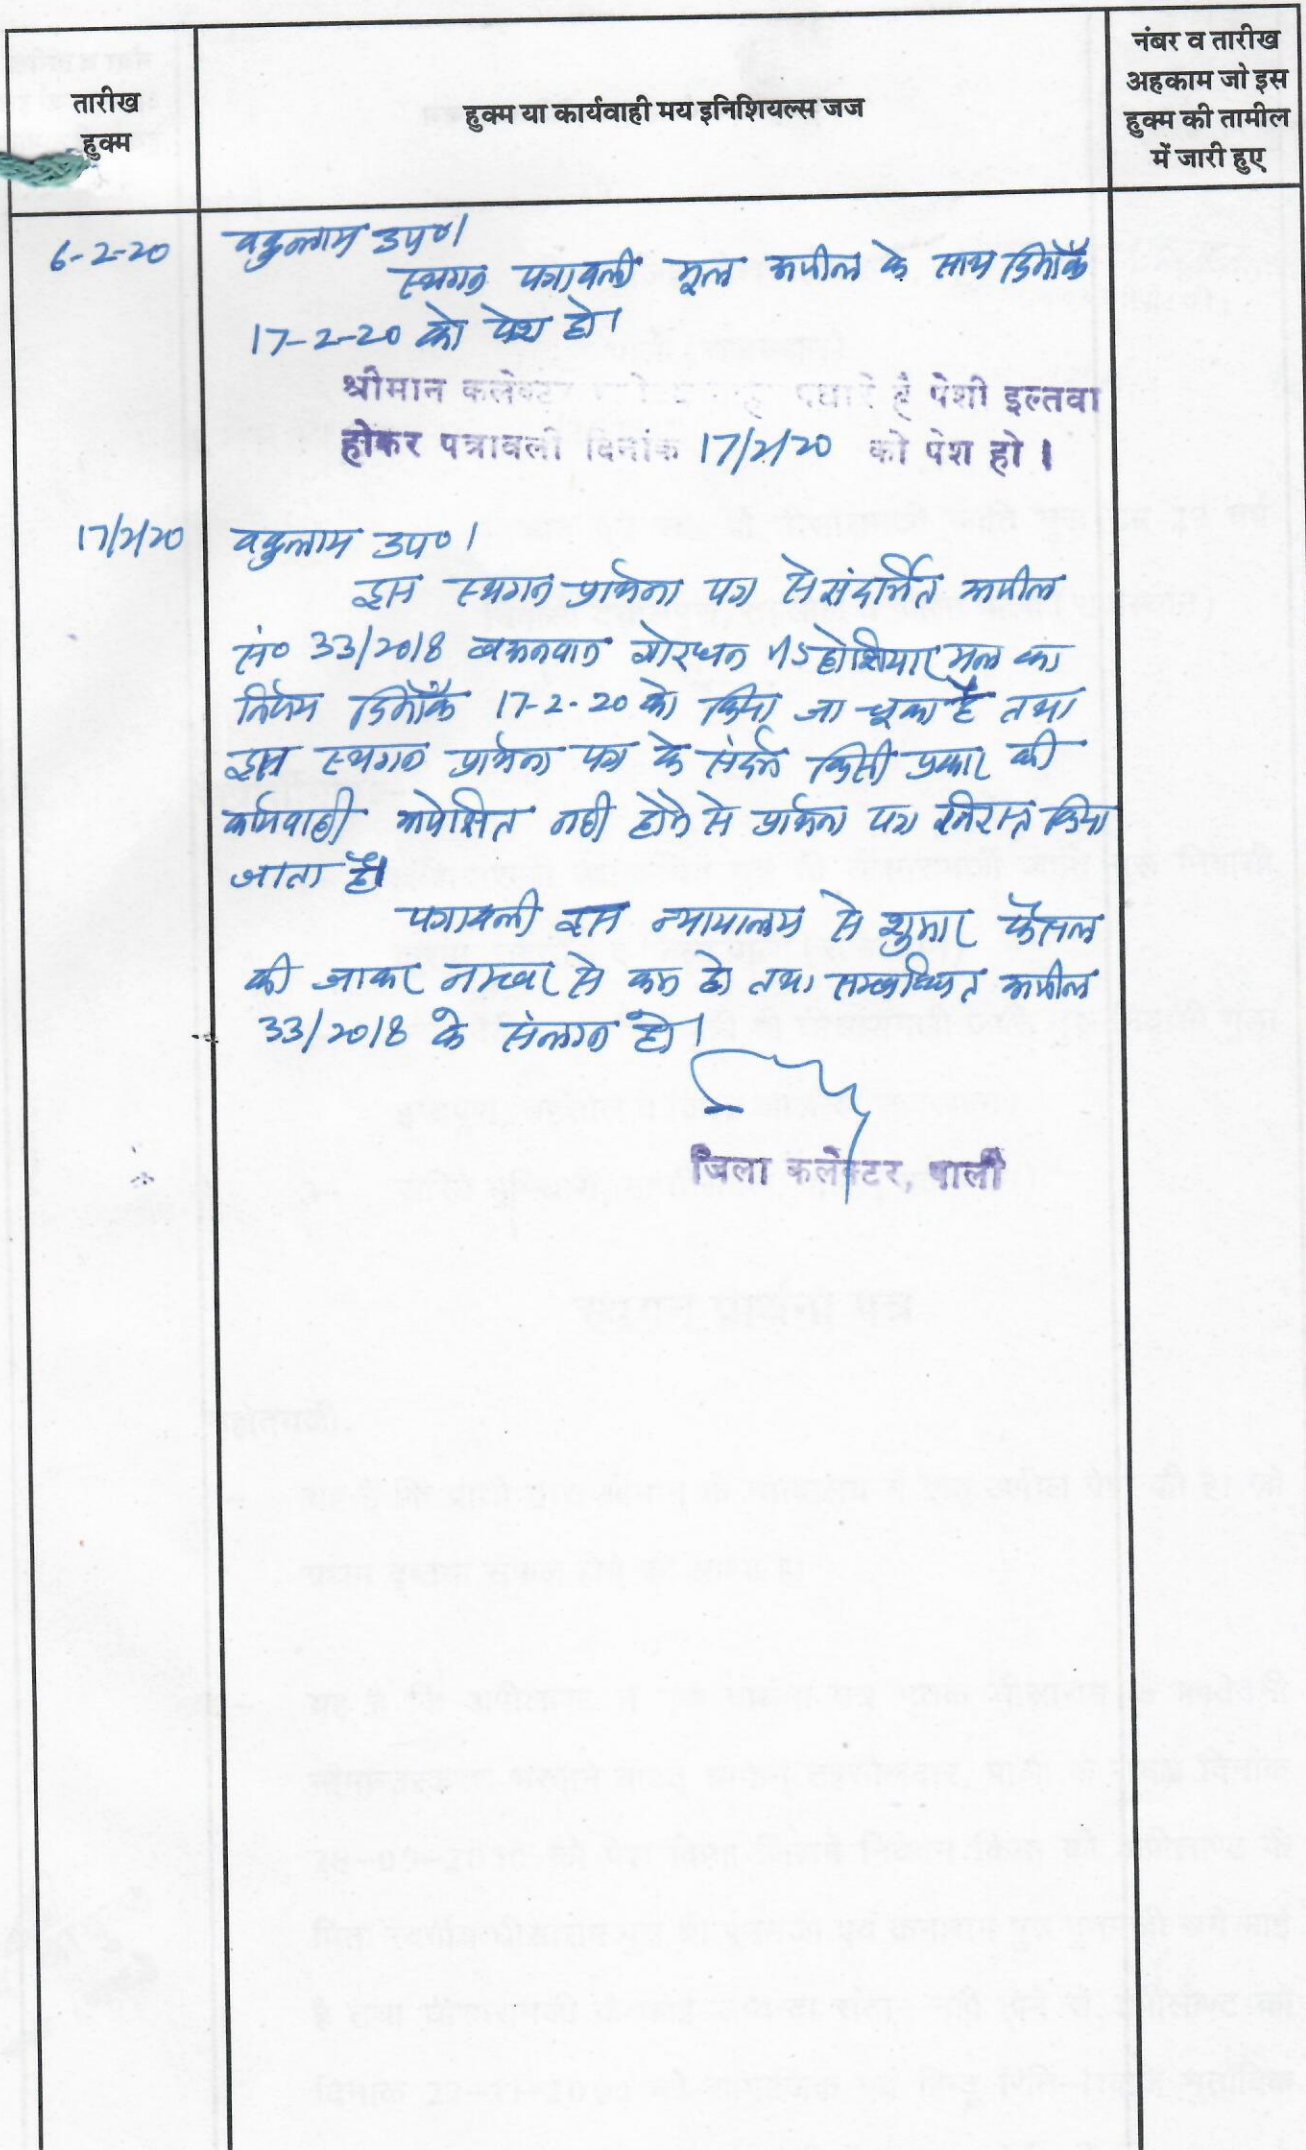 तारीख
हुक्म
हुक्म या कार्यवाही मय इनिशियल्स जज
नंबर व तारीख
अहकाम जो इस
हुक्म की तामील
में जारी हुए
6-2-20
वकुलाय उप०।
स्थगन पत्रावली मूल अपील के साथ दिनाँक
17-2-20 को पेश हो।
श्रीमान कलेक्टर पधारे है पेशी इल्तवा
होकर पत्रावली दिनांक 17/2/20 को पेश हो।
17/2/20
वकुलाय उप०।
इस स्थगन प्रार्थना पत्र से संदर्भित अपील
सं० 33/2018 बअनवान गोरधन V/S होशियार मल का
निर्णय दिनाँक 17-2-20 को किया जा चूका है तथा
इस स्थगन प्रार्थना पत्र के संदर्भ किसी प्रकार की
कार्यवाही अपेक्षित नही होने से प्रार्थना पत्र निरस्त किया
जाता है।
पत्रावली इस न्यायालय से शुमार फैसल
की जाकर नम्बर से कम हो तथा सम्बन्धित अपील
33/2018 के संलग्न हो।
जिला कलेक्टर, पाली